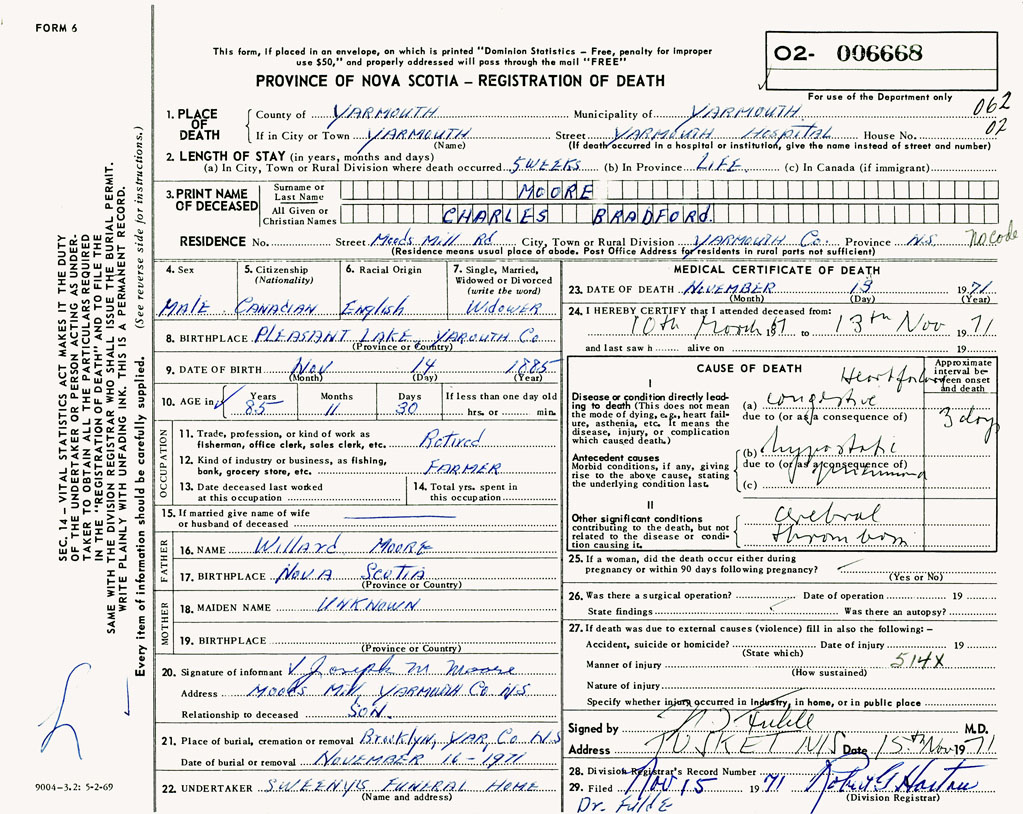 FORM 6
This form, if placed in an envelope, on which is printed "Dominion Statistics – Free, penalty for improper
use $50," and properly addressed will pass through the mail "FREE"
PROVINCE OF NOVA SCOTIA – REGISTRATION OF DEATH
02- 006668
For use of the Department only
062
02
1. PLACE OF DEATH
County of YARMOUTH Municipality of YARMOUTH
If in City or Town YARMOUTH Street YARMOUTH HOSPITAL House No.
(Name) (If death occurred in a hospital or institution, give the name instead of street and number)
2. LENGTH OF STAY (in years, months and days)
(a) In City, Town or Rural Division where death occurred 5 WEEKS (b) In Province LIFE (c) In Canada (if immigrant)
3. PRINT NAME OF DECEASED
Surname or Last Name MOORE
All Given or Christian Names CHARLES BRADFORD
RESIDENCE No. Street Moods Mill Rd City, Town or Rural Division YARMOUTH Co. Province N.S. No code
(Residence means usual place of abode. Post Office Address for residents in rural parts not sufficient)
SEC. 14 – VITAL STATISTICS ACT MAKES IT THE DUTY
OF THE UNDERTAKER OR PERSON ACTING AS UNDER-
TAKER TO OBTAIN ALL THE PARTICULARS REQUIRED
IN THE "REGISTRATION OF DEATH" AND TO FILE THE
SAME WITH THE DIVISION REGISTRAR WHO SHALL ISSUE THE BURIAL PERMIT.
WRITE PLAINLY WITH UNFADING INK. THIS IS A PERMANENT RECORD.
Every item of information should be carefully supplied. (See reverse side for instructions.)
4. Sex
Male
5. Citizenship (Nationality)
Canadian
6. Racial Origin
English
7. Single, Married, Widowed or Divorced (write the word)
Widower
8. BIRTHPLACE PLEASANT LAKE, YAROUTH Co
(Province or Country)
9. DATE OF BIRTH Nov 14 1885
(Month) (Day) (Year)
10. AGE in Years Months Days If less than one day old
85 11 30 hrs. or min.
OCCUPATION
11. Trade, profession, or kind of work as
fisherman, office clerk, sales clerk, etc. Retired
12. Kind of industry or business, as fishing,
bank, grocery store, etc. FARMER
13. Date deceased last worked
at this occupation
14. Total yrs. spent in
this occupation
15. If married give name of wife
or husband of deceased
FATHER
16. NAME Willard MOORE
17. BIRTHPLACE NOVA SCOTIA
(Province or Country)
MOTHER
18. MAIDEN NAME UNKNOWN
19. BIRTHPLACE
(Province or Country)
20. Signature of informant Joseph M. Moore
Address Moods Mill, YARMOUTH Co N.S
Relationship to deceased SON.
21. Place of burial, cremation or removal Brooklyn, YAR, Co. N.S
Date of burial or removal NOVEMBER 16 - 1971
22. UNDERTAKER SWEENYS FUNERAL HOME
(Name and address)
9004-3.2: 5-2-69
MEDICAL CERTIFICATE OF DEATH
23. DATE OF DEATH NOVEMBER 13 1971
(Month) (Day) (Year)
24. I HEREBY CERTIFY that I attended deceased from:
10th March 1967 to 13th Nov 1971
and last saw h alive on 19
CAUSE OF DEATH
Approximate interval between onset and death
I
Disease or condition directly lead-
ing to death (This does not mean
the mode of dying, e.g., heart fail-
ure, asthenia, etc. It means the
disease, injury, or complication
which caused death.)
Heart failure
(a) congestive
due to (or as a consequence of)
3 days
Antecedent causes
Morbid conditions, if any, giving
rise to the above cause, stating
the underlying condition last.
(b) hypostatic
due to (or as a consequence of)
pneumonia
(c)
II
Other significant conditions
contributing to the death, but not
related to the disease or condi-
tion causing it.
cerebral
thrombosis
25. If a woman, did the death occur either during
pregnancy or within 90 days following pregnancy?
(Yes or No)
26. Was there a surgical operation? Date of operation 19
State findings Was there an autopsy?
27. If death was due to external causes (violence) fill in also the following: –
Accident, suicide or homicide? Date of injury 19
(State which)
Manner of injury 514X
(How sustained)
Nature of injury
Specify whether injury occurred in Industry, in home, or in public place
Signed by M.D.
Address TUSKET N/S Date 15th Nov 1971
28. Division Registrar's Record Number
29. Filed Nov 15 1971 Robert G Horton
(Division Registrar)